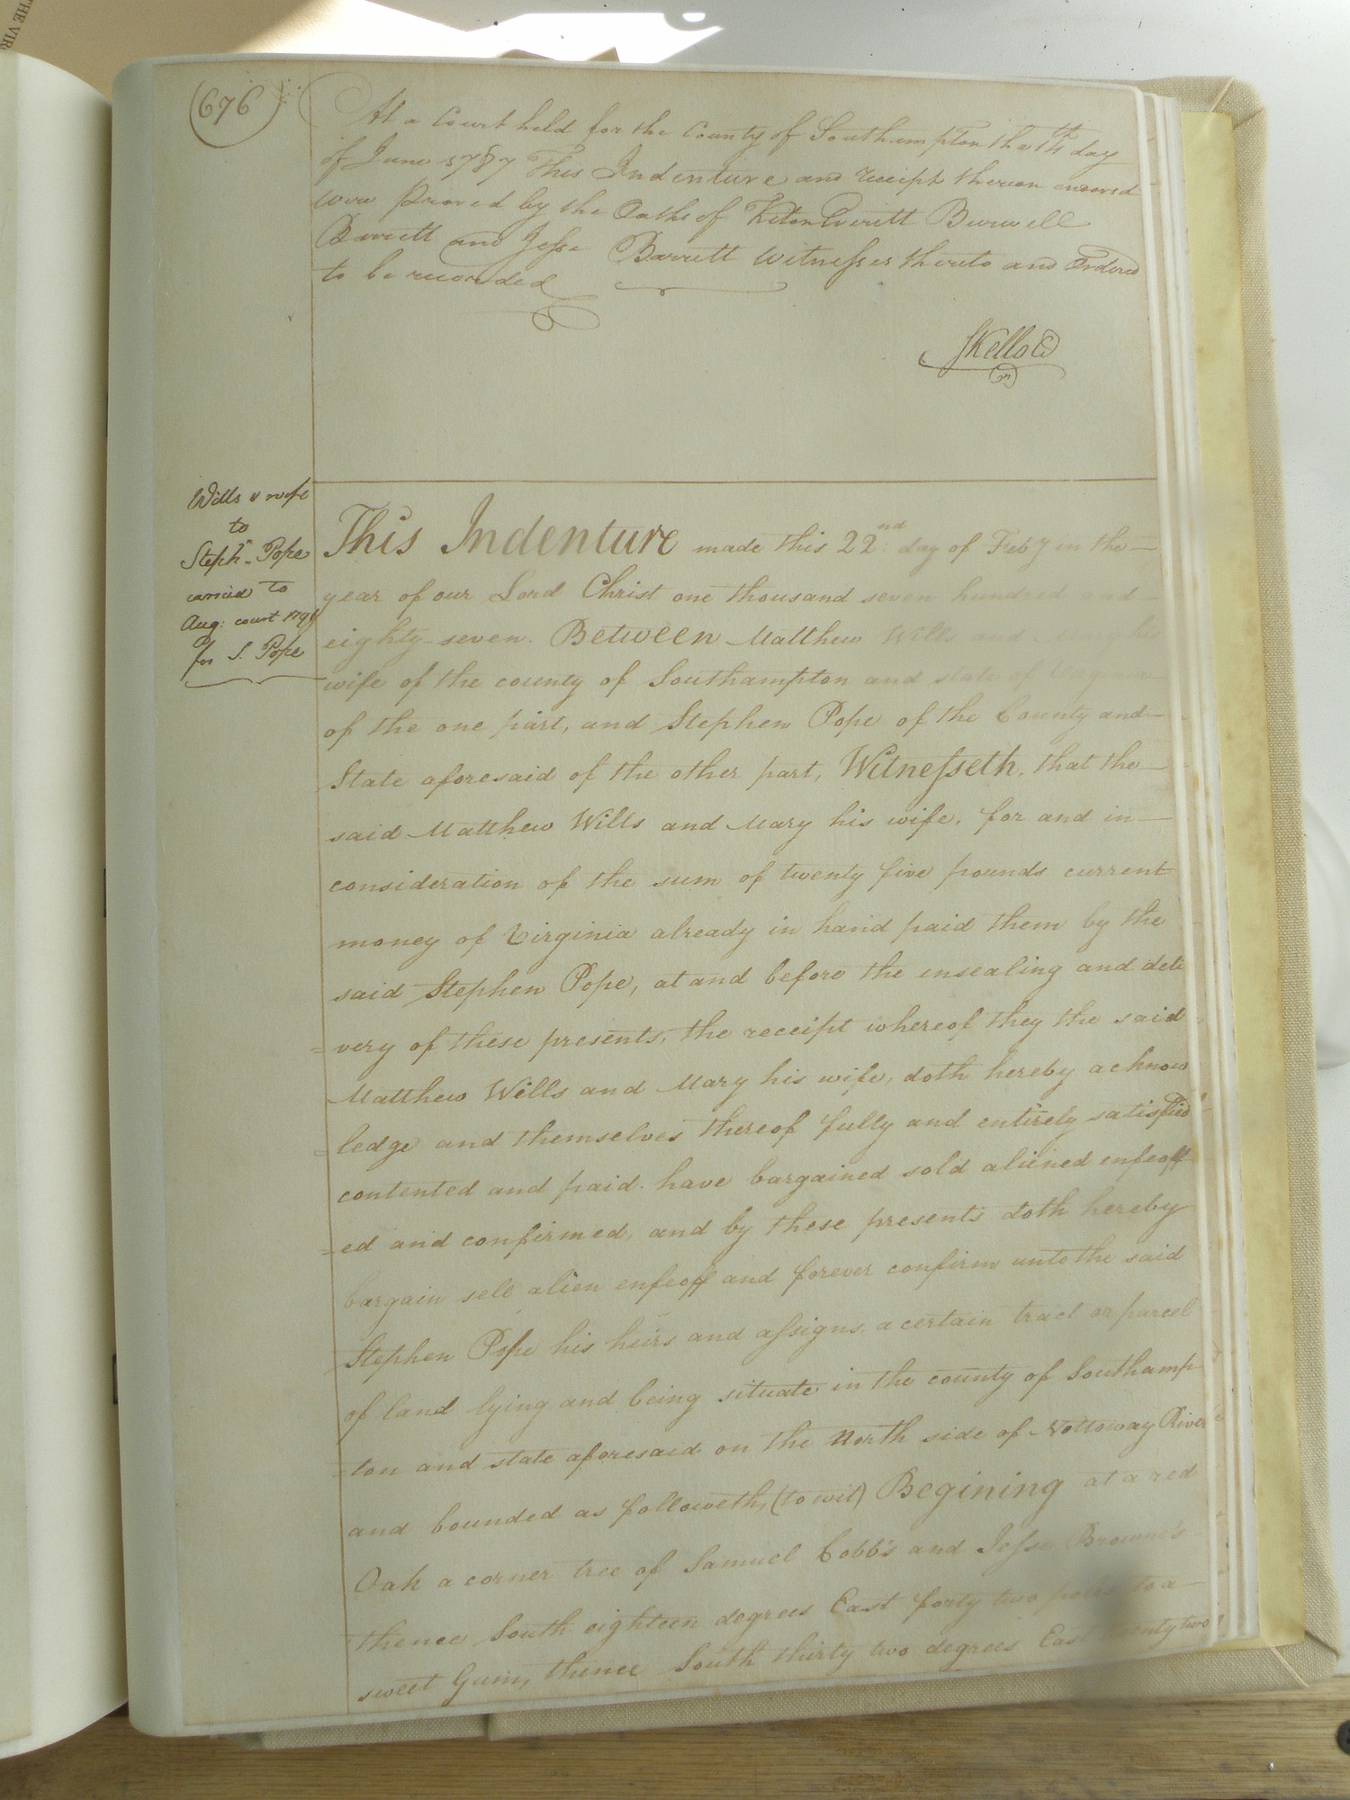 THE VIR
(676)
At a Court held for the County of Southampton the 14th day
of June 1787 This Indenture and receipt thereon endorsed
were Proved by the Oaths of Everitt Burwell
Barrett and Jesse Barrett Witnesses thereto and Ordered
to be recorded
SKello C
Wills & wife
to
Steph.n Pope
carried to
Aug: court
for S. Pope
This Indenture made this 22nd. day of Feby in the
year of our Lord Christ one thousand seven hundred and
eighty-seven. Between Matthew Wills and his
wife of the county of Southampton and state of Virginia
of the one part, and Stephen Pope of the County and
State aforesaid of the other part, Witnesseth, that the
said Matthew Wills and Mary his wife, for and in
consideration of the sum of twenty five pounds current
money of Virginia already in hand paid them by the
said Stephen Pope, at and before the ensealing and deli
=very of these presents, the receipt whereof they the said
Matthew Wills and Mary his wife, doth hereby acknow
=ledge and themselves thereof fully and entirely satisfied
contented and paid. have bargained sold aliened enfeoff
=ed and confirmed, and by these presents doth hereby
bargain sell alien enfeoff and forever confirm unto the said
Stephen Pope his heirs and assigns, a certain tract or parcel
of land lying and being situate in the county of Southamp
=ton and state aforesaid on the North side of Nottoway River
and bounded as followeth, (to wit) Begining at a red
Oak a corner tree of Samuel Cobb's and Jesse Browne's
thence South eighteen degrees East forty two poles to a
sweet Gum, thence South thirty two degrees East twenty two